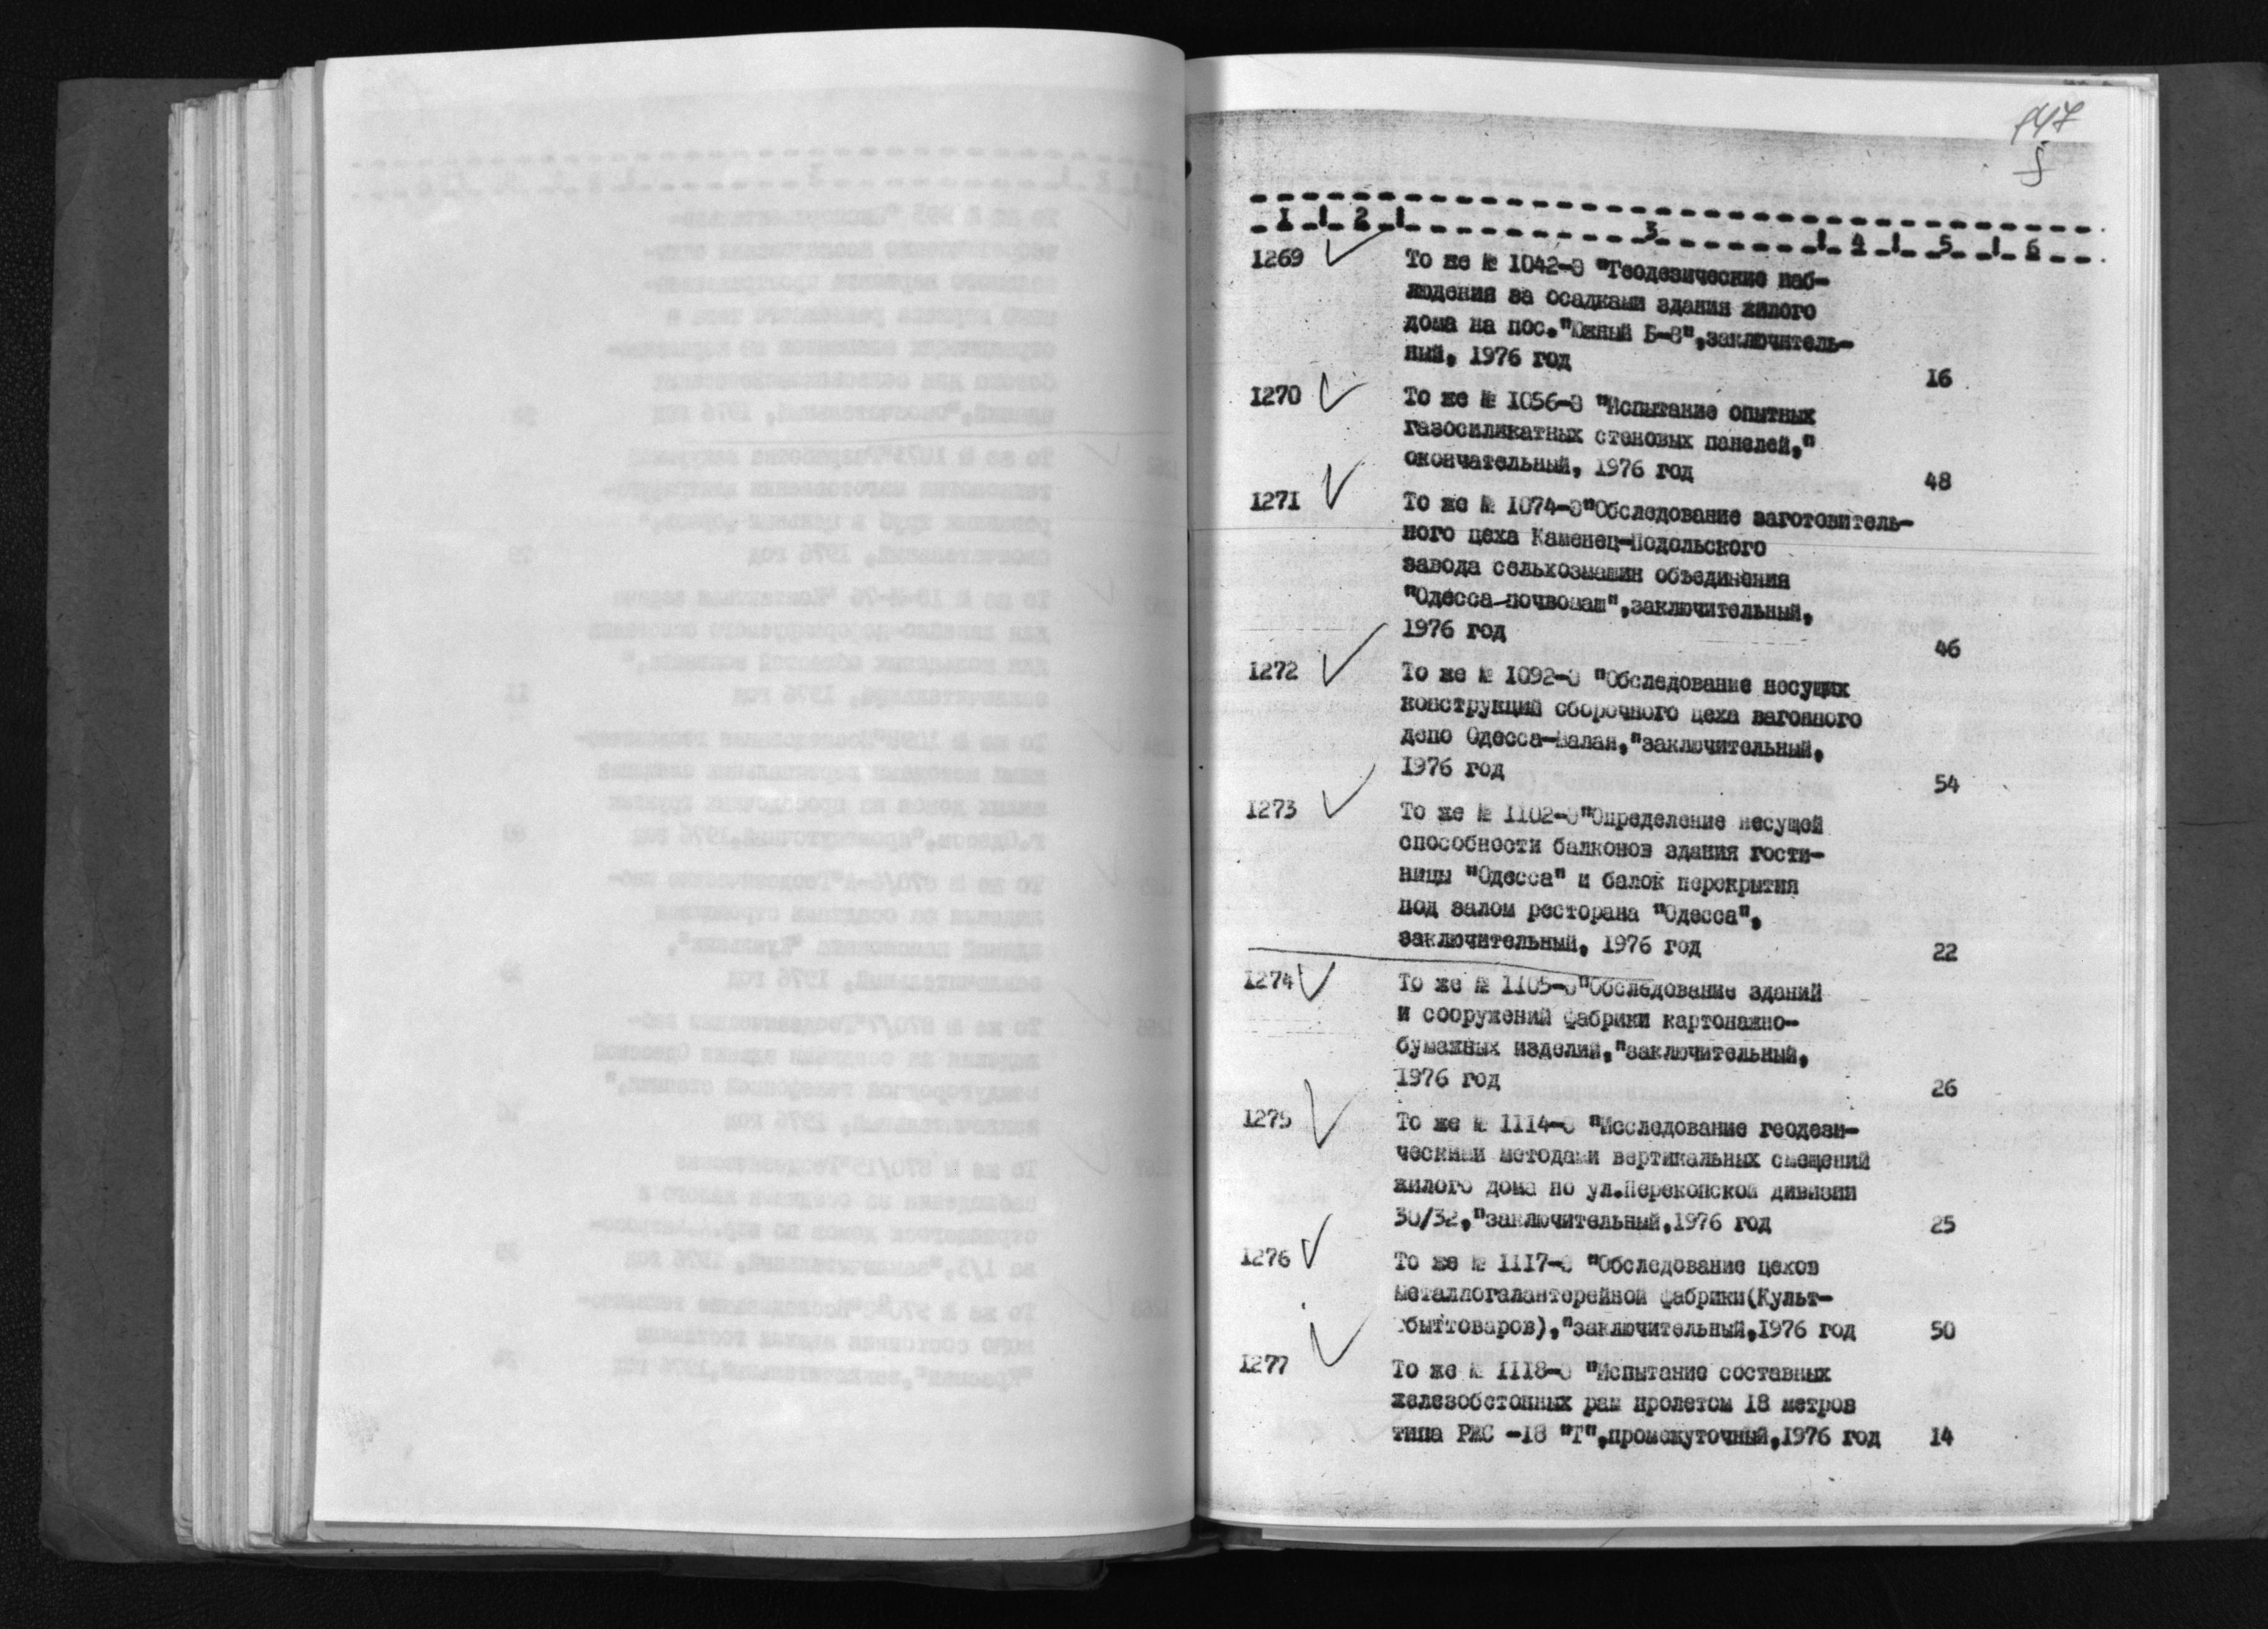 1 ! 2 ! 3 ! 4 ! 5 ! 6
1269 То же № 1042-0 "Геодезические наб-
людения за осадками здания жилого
дома на пос."Южный Б-8",заключитель-
ный, 1976 год 16
1270 То же № 1056-0 "Испытание опытных
газосиликатных стеновых панелей,"
окончательный, 1976 год 48
1271 То же № 1074-0"Обследование заготовитель-
ного цеха Каменец-Подольского
завода сельхозмашин объединения
"Одесса-почвомаш",заключительный,
1976 год 46
1272 То же № 1092-0 "Обследование несущих
конструкций сборочного цеха вагонного
депо Одесса-Малая,"заключительный,
1976 год 54
1273 То же № 1102-0"Определение несущей
способности балконов здания гости-
ницы "Одесса" и балок перекрытия
под залом ресторана "Одесса",
заключительный, 1976 год 22
1274 То же № 1105-0"Обследование зданий
и сооружений фабрики картонажно-
бумажных изделий,"заключительный,
1976 год 26
1275 То же № 1114-0 "Исследование геодези-
ческими методами вертикальных смещений
жилого дома по ул.Перекопской дивизии
30/32,"заключительный,1976 год 25
1276 То же № 1117-0 "Обследование цехов
Металлогалантерейной фабрики(Культ-
бытТоваров),"заключительный,1976 год 50
1277 То же № 1118-0 "Испытание составных
железобетонных рам пролетом 18 метров
типа РЖС -18 "Т",промежуточный,1976 год 14